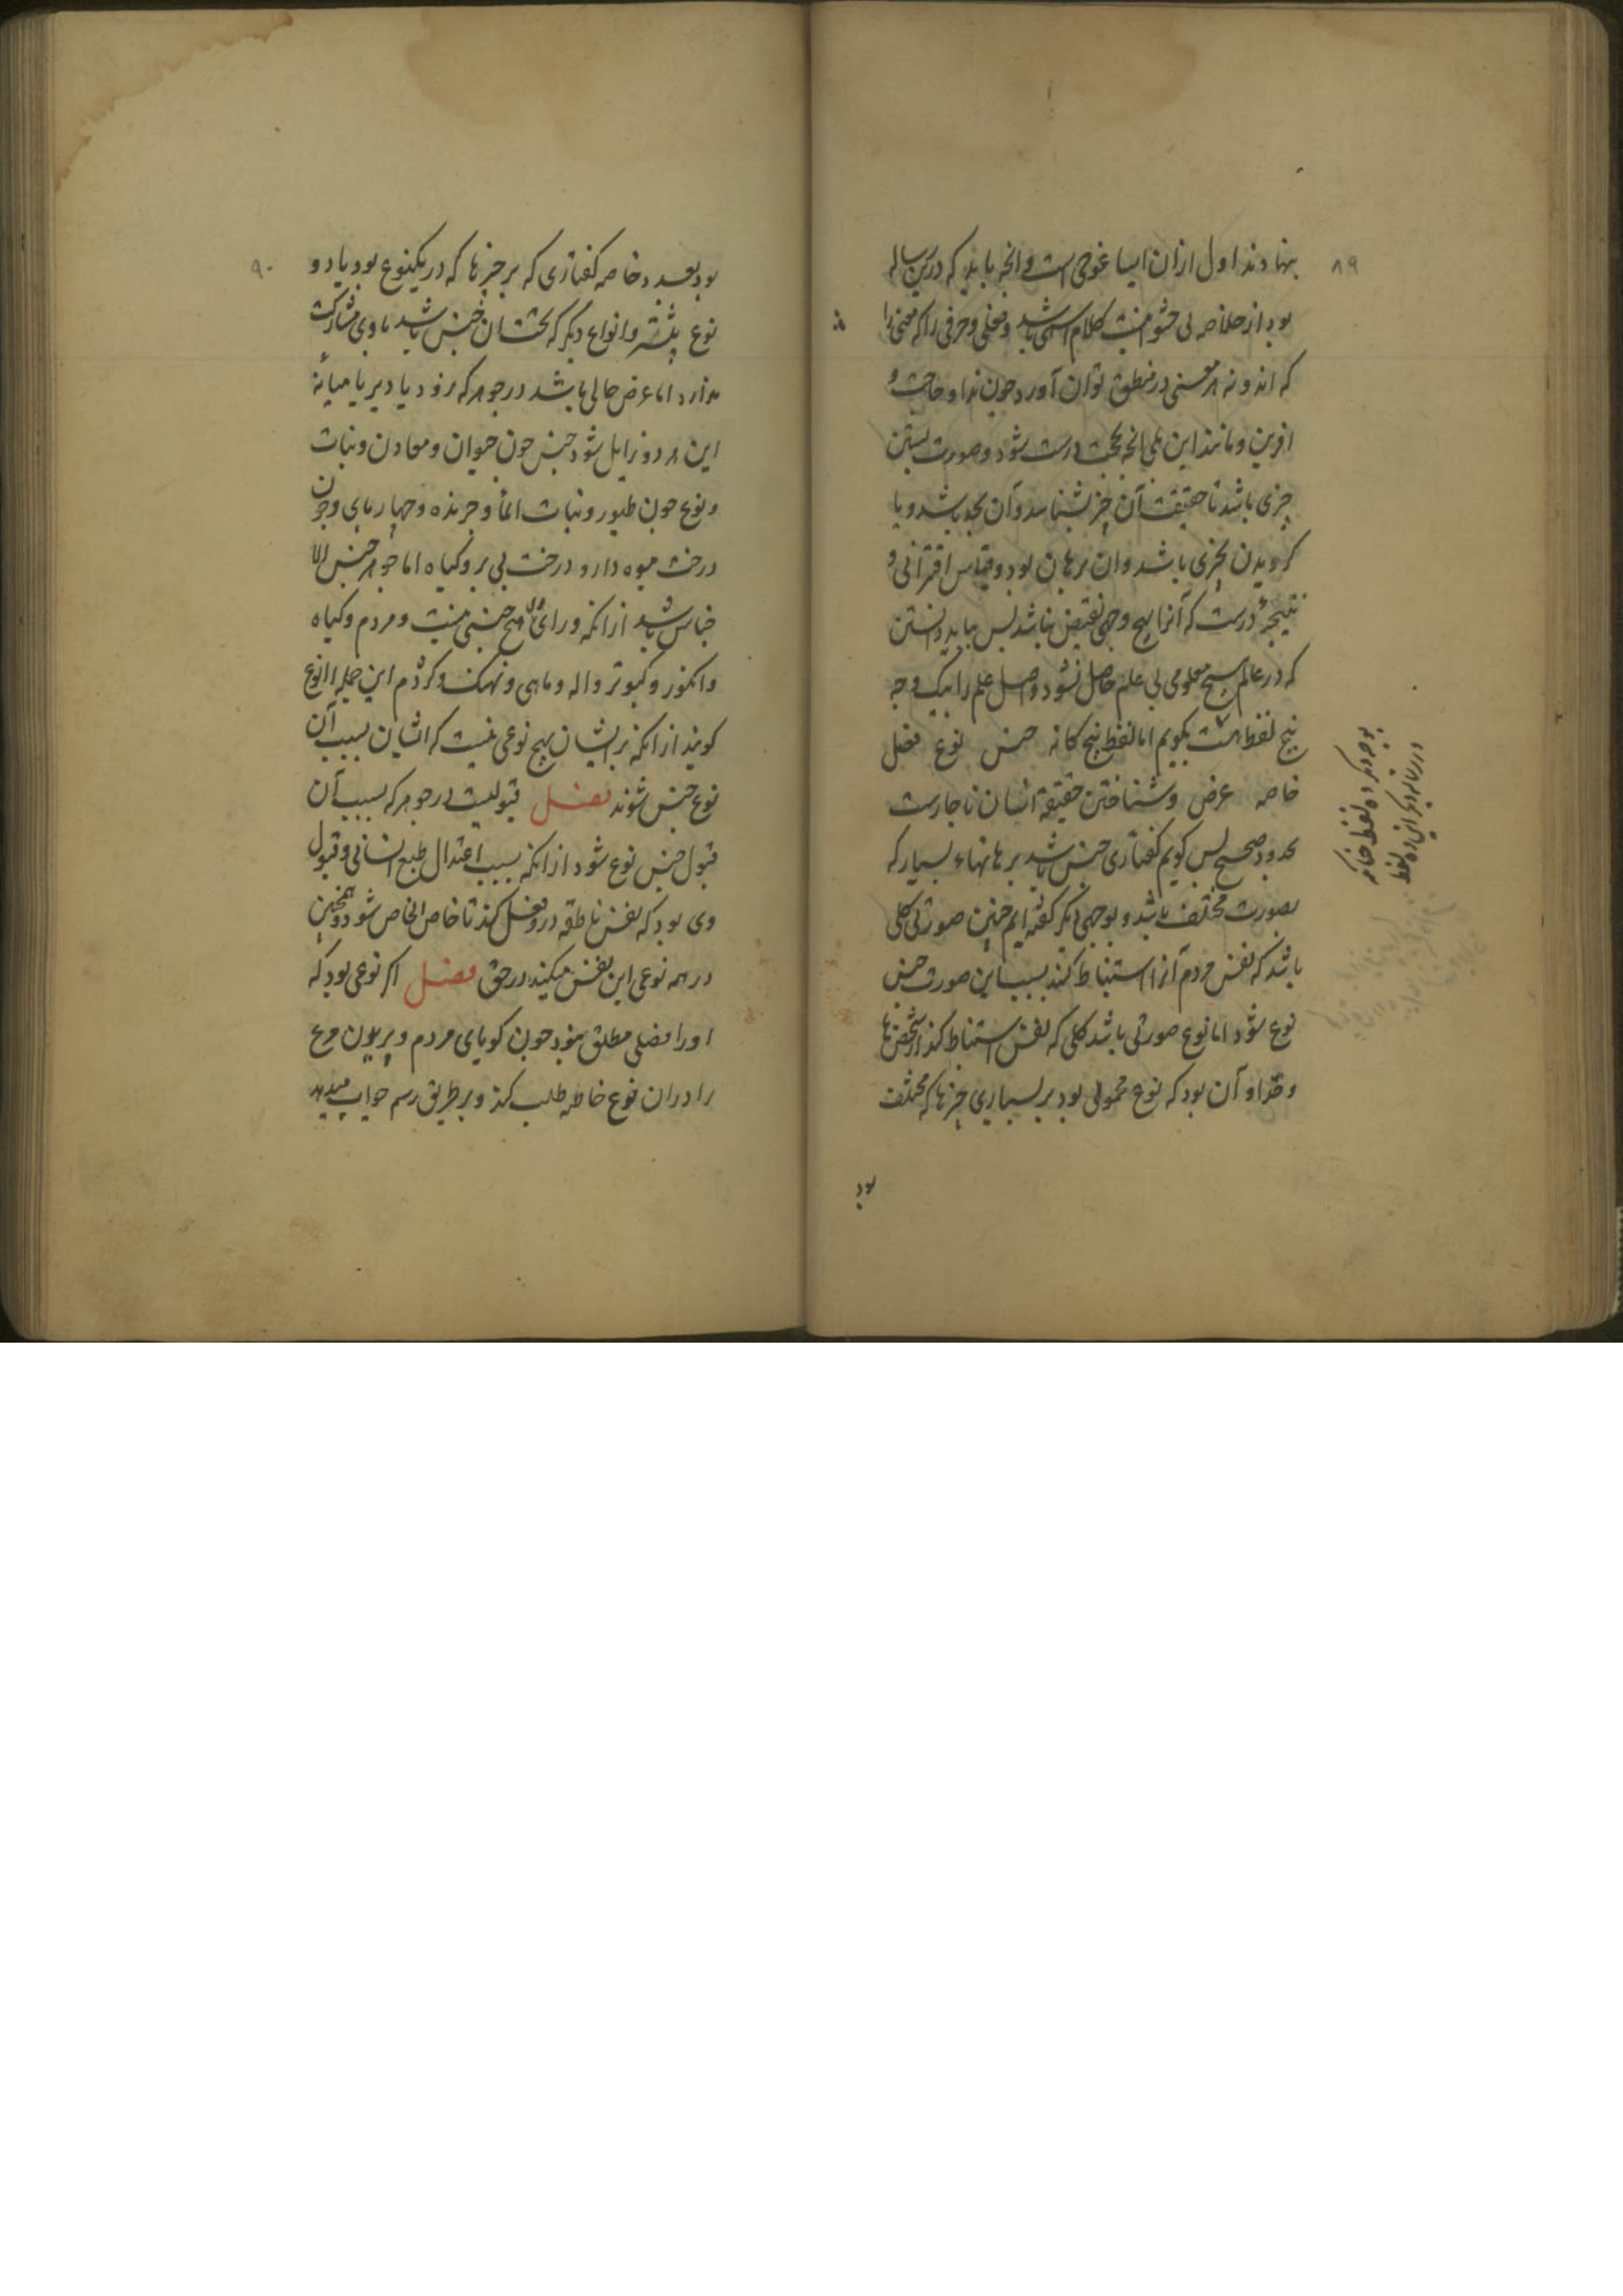 ۸۹
بنهادند اول ازان ایساغوجی است و انچه باید که درین رساله
بود از خلاصه بی حشو اینست کلام اسمی باشد و فعلی و حرفی را که معنی را
که اندونه هر معنی در منطق توان آورد چون ندا و حاجت و
افرین و مانند این بلی انچه بحجت درست شود و صورت بستن
چیزی باشد تا حقیقت آن چیز بشناسد و آن بحد باشد و یا
کرویدن بچیزی باشد و ان برهان بود و قیاس اقترانی و
نتیجهٔ درست که آنرا بهیچ وجهی نقیض نباشد بس بباید دانستن
که در عالم هیچ معلومی بی علم حاصل نشود و اصل علم را بیک وجه
پنج لفظ است بکویم اما لفظ پنج کانه جنس نوع فصل
خاصه عرض و شناختن حقیقة انسان ناچارست
بحدود صحیح بس کویم کفتاری جنس باشد بر هانهاء بسیار که
بصورت مختلف باشد و بوجهی دیگر کفته ایم جنین صورتی کلی
باشد که نفس مردم آنرا استنباط کند بسبب این صورت جنس
نوع شود اما نوع صورتی باشد کلی که نفس استنباط کند از شخص ها
و حد او آن بود که نوع محمولی بود بر بسیاری چیزها که مختلف
بود
بوجه دیگر ده لفظ خاتم
در رساله دیگر این ده لفظ
۹۰
بود بعدد خاصه کفتاری که بر چیزها که در یکنوع بود یا دو
نوع بیشتر و انواع دیگر که تحتشان جنس باشد با وی مشارکت
ندارد اما عرض حالی باشد در جوهر که بزود یا دیر یا میانهٔ
این هر دو زایل شود جنس چون حیوان و معادن و نبات
و نوع چون طیور و نبات الماً و چرنده و چهارپای و چون
درخت میوه دار و درخت بی بر و کیاه اما جوهر جنس الا
جناس باشد از انکه ورای او هیچ جنسی نیست و مردم و کیاه
و انکور و کبوتر و اله و ماهی و نهنک و کژدم این جمله را انواع
کویند از انکه بر ایشان هیچ نوعی نیست که ایشان بسبب آن
نوع جنس شوند فصل قبولیست در جوهر که بسبب آن
قبول جنس نوع شود از انکه بسبب اعتدال طبع انسانی و قبول
وی بود که نفس ناطقه درو فعل کند تا خاص الخاص شود و همچنین
در همه نوعی این نفس میکند در حق فصل اکر نوعی بود که
او را فصلی مطلق نبود چون کویای مردم و پریدن مرغ
را دران نوع خاصه طلب کند و بر طریق رسم جواب میدهد